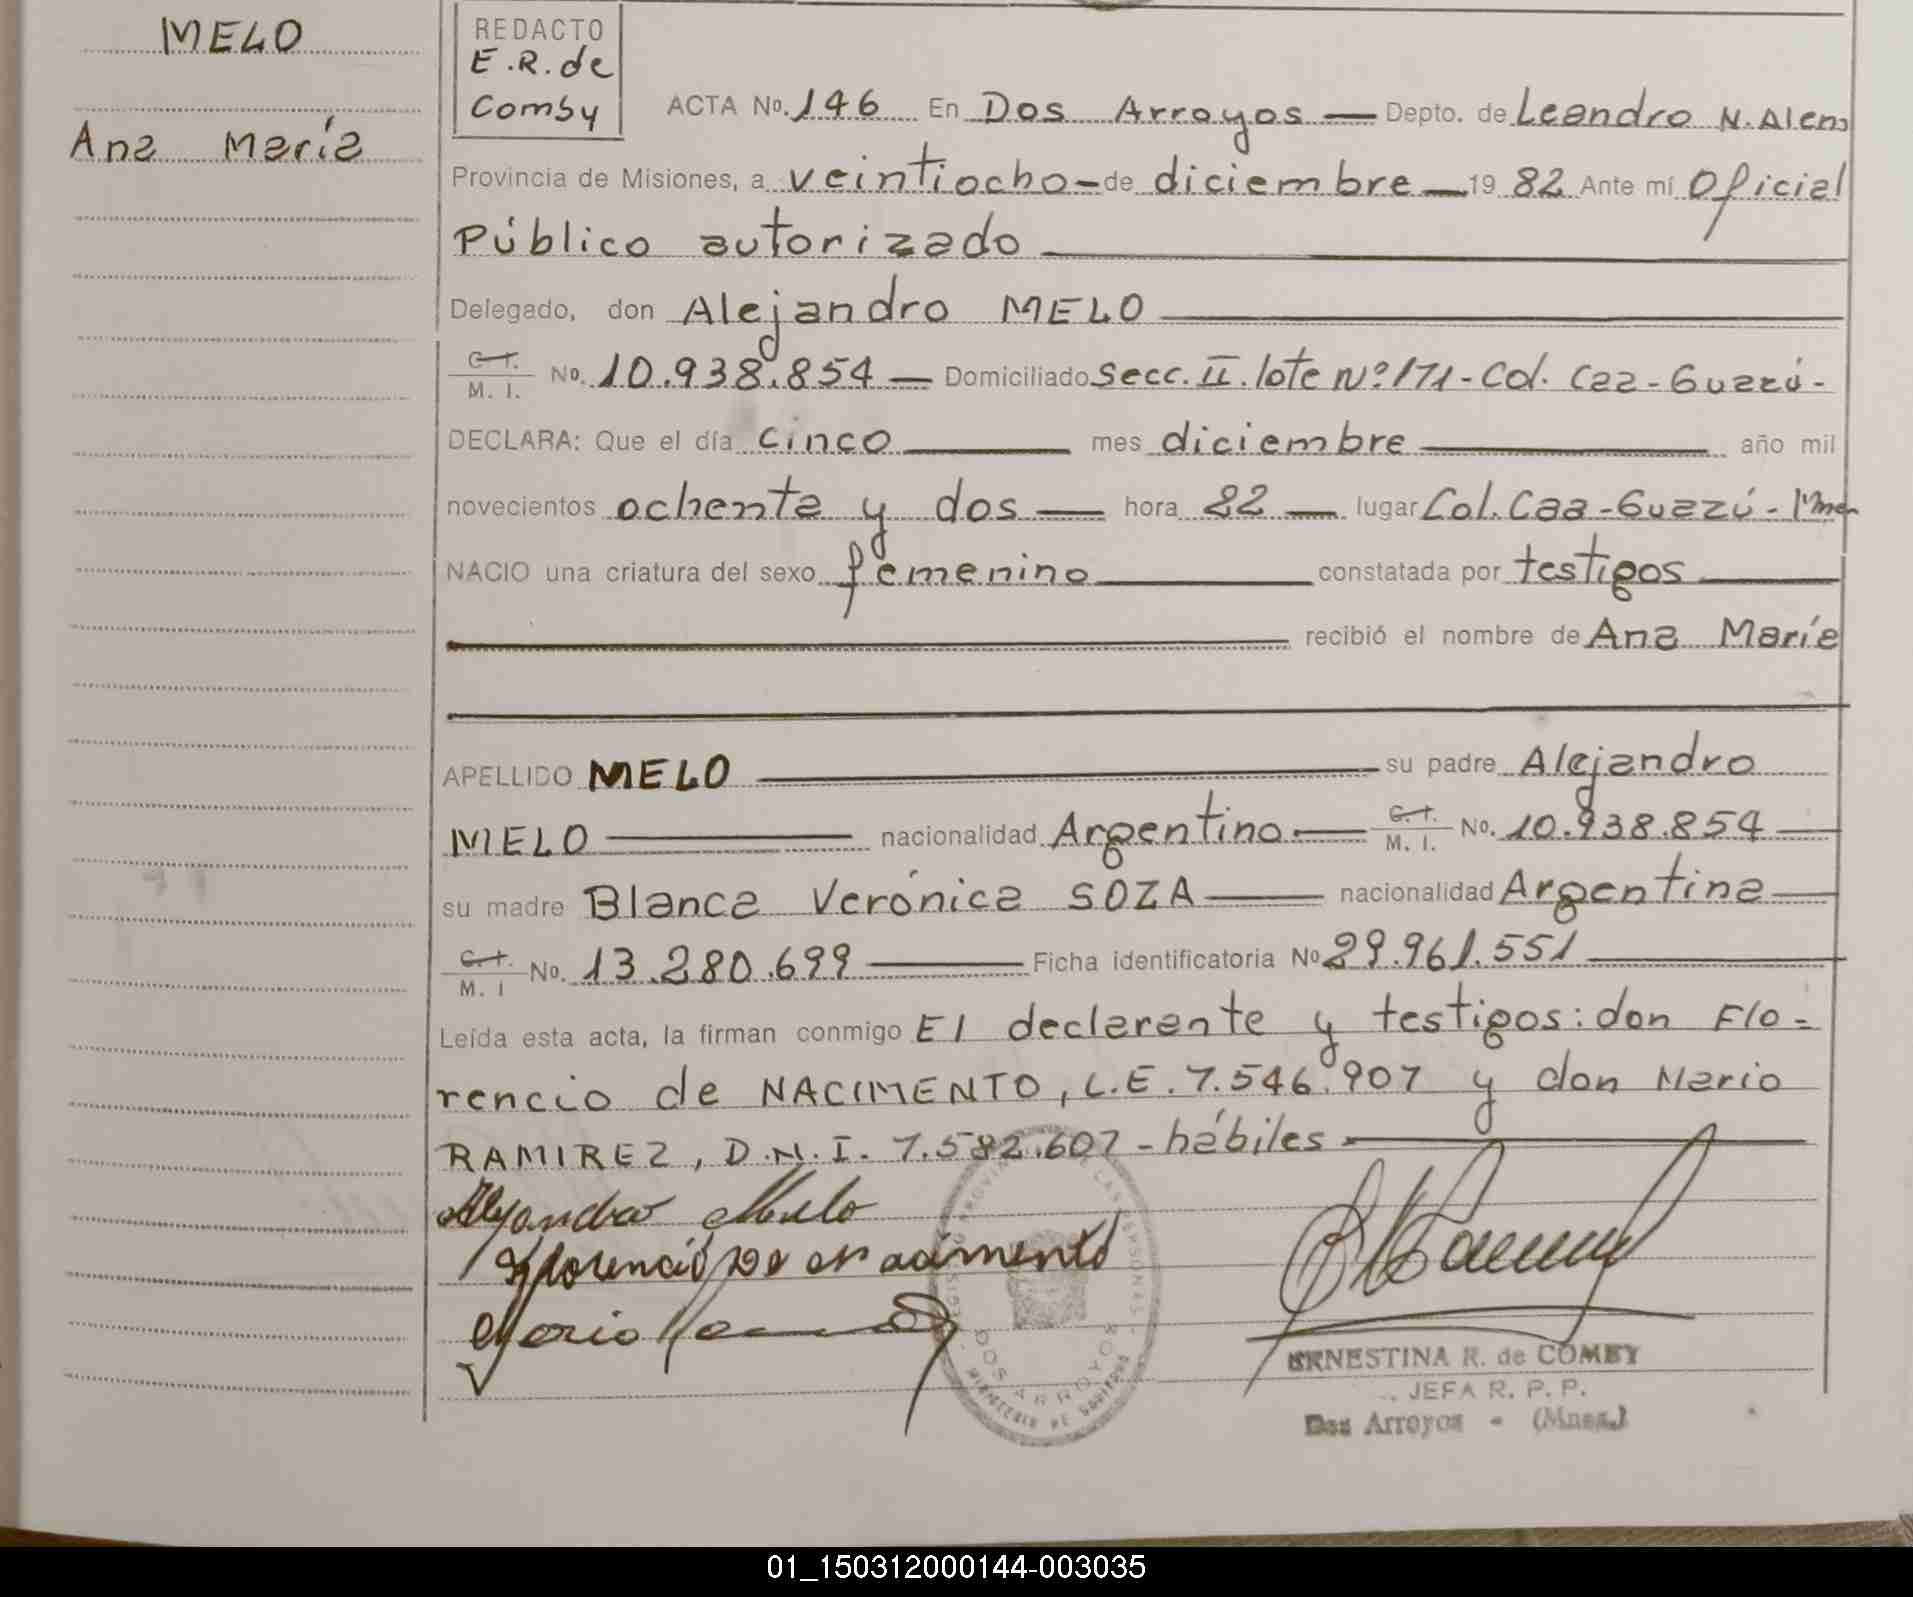 MELO
Ana María
REDACTO
E.R. de
Comby
ACTA No. 146 En Dos Arroyos — Depto. de Leandro N. Alem
Provincia de Misiones, a veintiocho - de diciembre — 19 82 Ante mí Oficial
Público autorizado
Delegado, don Alejandro MELO
C. I.
M. I. No. 10.938.854 — Domiciliado Secc. II. lote Nº 171 - Col. Caa-Guazú -
DECLARA: Que el día cinco mes diciembre año mil
novecientos ochenta y dos — hora 22 — lugar Col. Caa-Guazú -
NACIO una criatura del sexo femenino constatada por testigos
recibió el nombre de Ana María
APELLIDO MELO su padre Alejandro
MELO nacionalidad Argentino — C. I.
M. I. No. 10.938.854 —
su madre Blanca Verónica SOZA — nacionalidad Argentina —
C. I.
M. I No. 13.280.699 — Ficha identificatoria No 29.961.551
Leída esta acta, la firman conmigo El declarante y testigos: don Flo-
rencio de NACIMENTO, L.E. 7.546.907 y don Mario
RAMIREZ, D.N.I. 7.582.607 - hábiles -
Alejandro Melo
Florencio De nacimento
Mario
DOS ARROYOS
ERNESTINA R. de COMBY
JEFA R. P. P.
Dos Arroyos - (Mnes.)
01_150312000144-003035